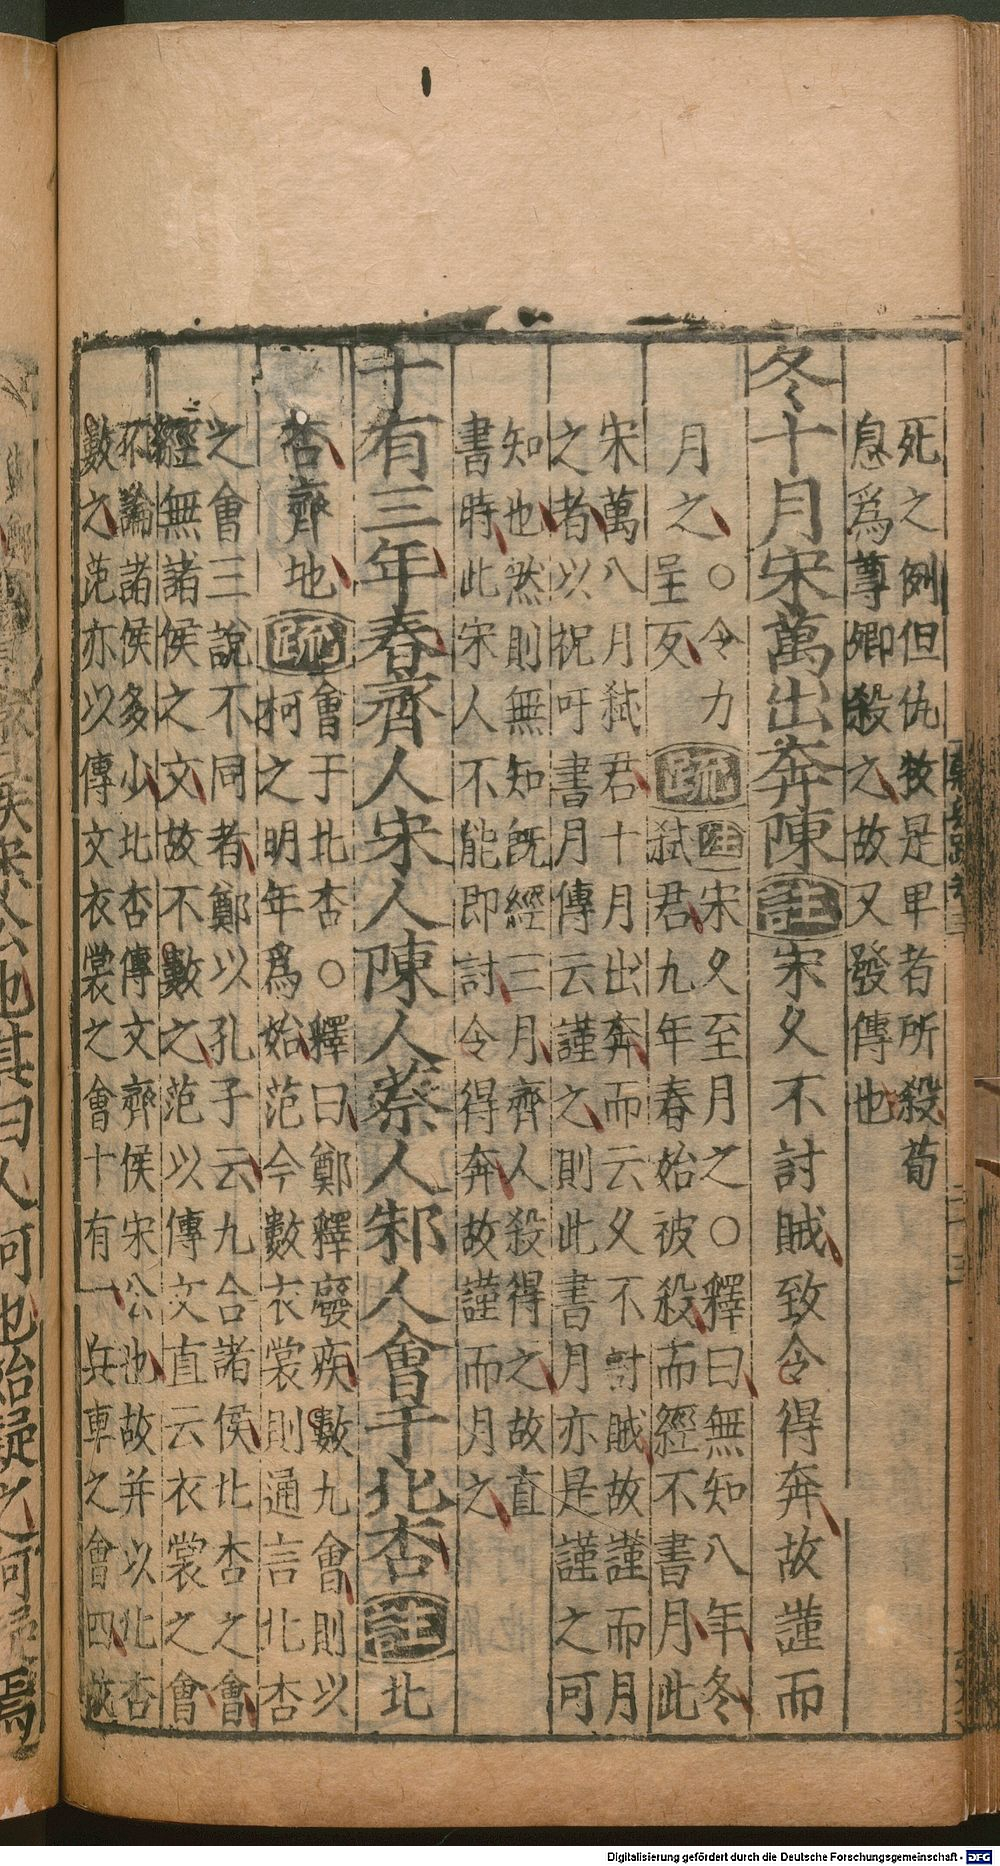 死之例但仇牧是卑者所殺荀
息爲尊卿殺之故又發傳也
冬十月宋萬出奔陳註宋久不討賊致令得奔故謹而
月之○令力
呈反疏註宋久至月之○釋曰無知八年冬
弒君九年春始被殺而經不書月此
宋萬八月弒君十月出奔而云久不討賊故謹而月
之者以祝吁書月傳云謹之則此書月亦是謹之可
知也然則無知既經三月齊人殺得之故直
書時此宋人不能即討令得奔故謹而月之
十有三年春齊人宋人陳人蔡人邾人會于北杏註北
杏齊地疏會于北杏○釋曰鄭釋廢疾數九會則以
柯之明年爲始范今數衣裳則通言北杏
之會三說不同者鄭以孔子云九合諸侯北杏之會
經無諸侯之文故不數之范以傳文直云衣裳之會
不論諸侯多少北杏傳文齊侯宋公也故并以北杏
數之范亦以傳文衣裳之會十有一兵車之會四故
Digitalisierung gefördert durch die Deutsche Forschungsgemeinschaft - DFG